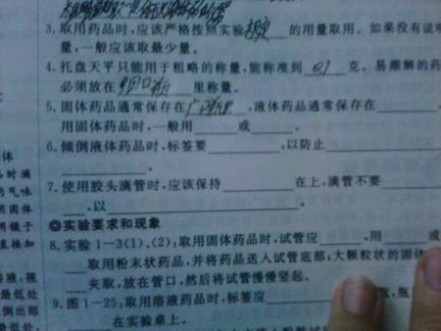 3. 取用药品时，应该严格按照实验规定的用量取用。如果没有说明
量，一般应该取最少量。
4. 托盘天平只能用于粗略的称量，能称准到 0.1 克。易潮解的药
必须放在 里称量。
5. 固体药品通常保存在广口瓶里，液体药品通常保存在
用固体药品时，一般用 或 。
6. 倾倒液体药品时，标签要 ，以防止
7. 使用胶头滴管时，应该保持 在上，滴管不要
，以 。
◎实验要求和现象
8. 实验 1-3(1)、(2)：取用固体药品时，试管应 ，用 或
取用粉末状药品，并将药品送入试管底部；大颗粒状的固体
夹取，放在管口，然后将试管慢慢竖起。
9. 图 1-25：取用溶液药品时，标签应
在实验桌上。
体
的气味
用固体
用镊子
直接加
最低处
倒出部